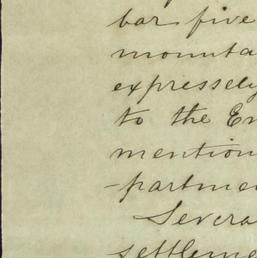 bar five
mounta
expressely
to the En
mention
-partmen
Severa
settleme